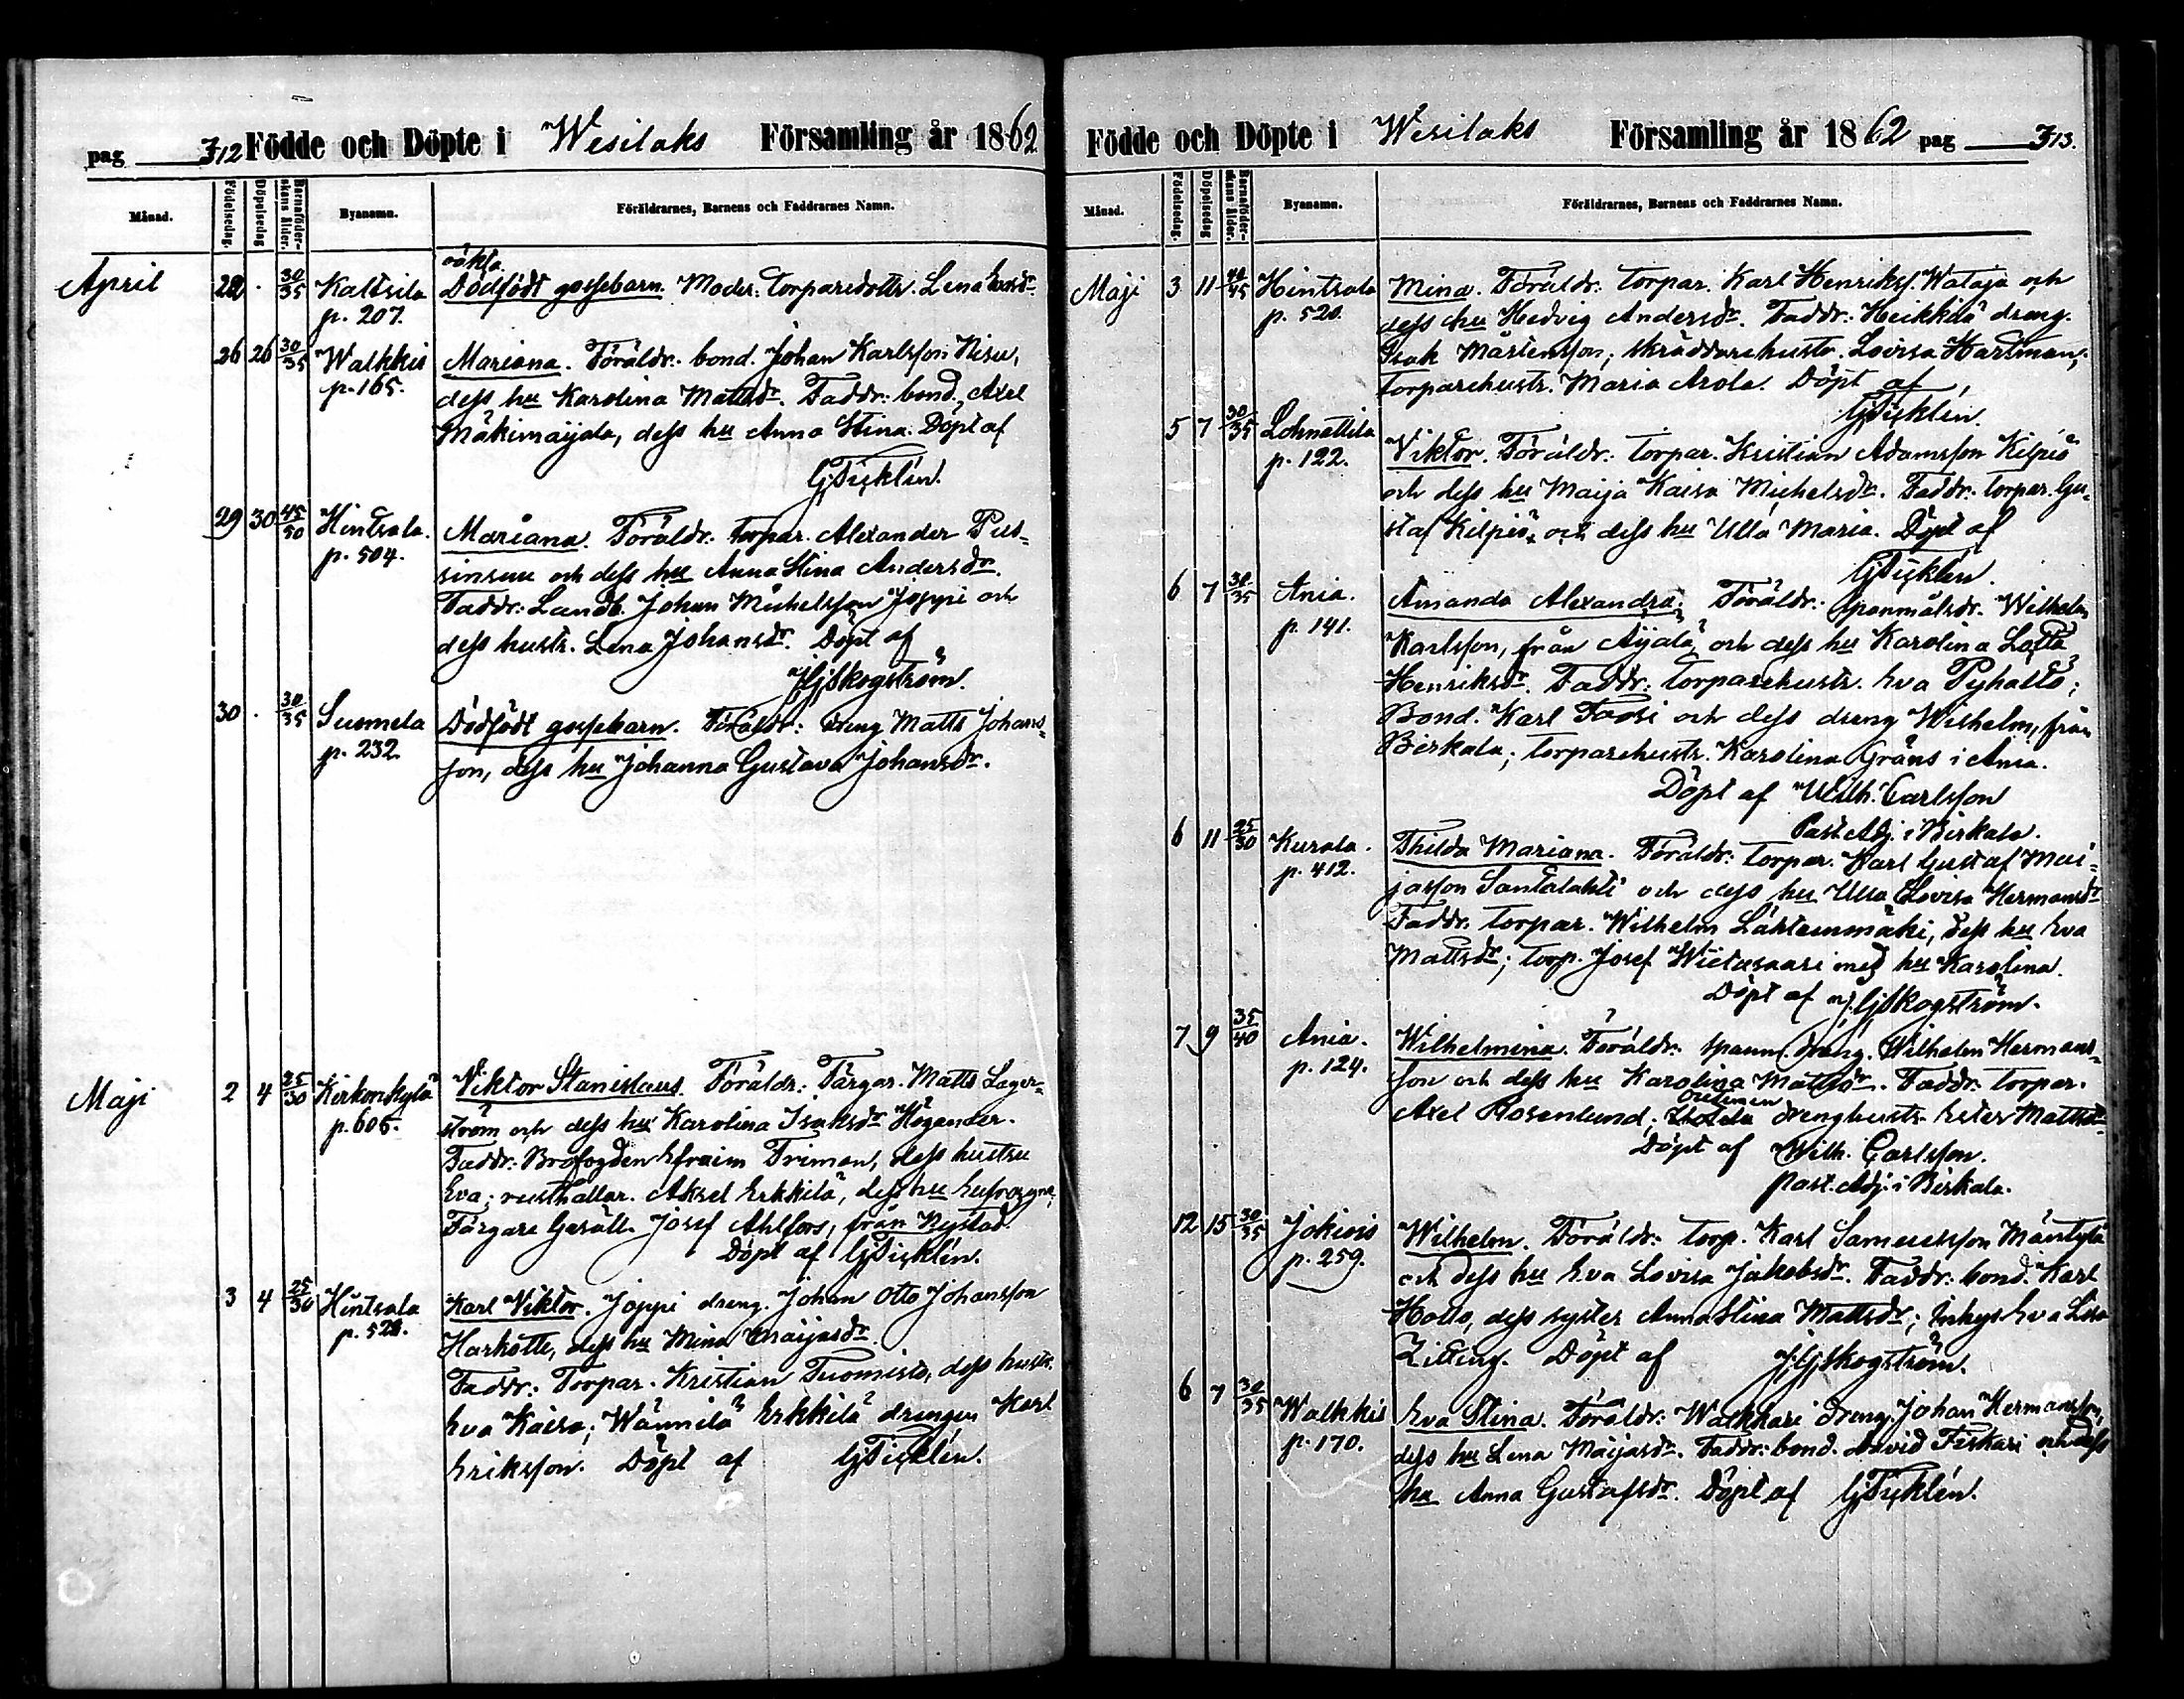 pag 312 Födde och Döpte i Wesilaks Församling år 1862
Månad. Födelsedag. Döpelsedag Barnaföderskans ålder. Byanamn. Föräldrarnes, Barnens och Faddrarnes Namn.
oäkta
April 22 . 30/35 Kaltsila Dödfödt gossebarn. Moder: torparedottr. Lena
p. 207.
26 26 30/35 Walkkis Mariana. Föräldr: bond. Johan Karlsson Nisu,
p. 165. dess hu Karolina Mattsdr. Faddr: bond. Axel
Mäkimaijala, dess hu Anna Stina. Döpt af
G Ticklén.
29 30 45/50 Hintsala. Mariana. Föräldr: torpar. Alexander Pus-
p. 504. sinsuu och dess hu Anna Stina Andersdr.
Faddr: Landb. Johan Michelsson Joppi och
dess hustr. Lena Johansdr. Döpt af
J G Skogström.
30 . 30/35 Suomela Dödfödt gossebarn. Föräldr: dreng Matts Johans-
p. 232. son, dess hu Johanna Gustava Johansdr.
Maji 2 4 25/30 Kirkonkylä Viktor Stanislaus. Föräldr: Färgar. Matts Lager-
p. 605. ström och dess hu Karolina Isaksdr Högander.
Faddr: Brofogden Efraim Friman, dess hustru
Eva; rusthållar. Aksel Erkkilä, dess hu Eufrosyna;
Färgare Gesäll. Josef Ahlfors, från Nystad.
Döpt af G Ticklén.
3 4 25/30 Hintsala Karl Viktor. Joppi dreng. Johan Otto Johansson
p. 521. Harkotte, dess hu Mina Maijasdr.
Faddr: Torpar. Kristian Tuomisto, dess hustr.
Eva Kaisa; Wännilä Erkkilä drengen Karl
Eriksson. Döpt af G Ticklén.
Födde och Döpte i Wesilaks Församling år 1862 pag 313.
Månad. Födelsedag. Döpelsedag Barnaföderskans ålder. Byanamn. Föräldrarnes, Barnens och Faddrarnes Namn.
Maji 3 11 40/45 Hintsala Mina. Föräldr: torpar. Karl Henrikss. Wataja och
p. 520. dess hu Hedvig Andersdr. Faddr: Heikkilä dreng.
Isak Mårtensson; skräddarehustr. Lovisa Hartman;
torparehustr. Maria Arola. Döpt af
G Ticklén.
5 7 30/35 Lohnattila Viktor. Föräldr: torpar. Kristian Adamsson Kilpiö
p. 122. och dess hu Maija Kaisa Michelsdr. Faddr: torpar. Gu-
staf Kilpiö, och dess hu Ulla Maria. Döpt af
G Ticklén.
6 7 30/35 Ania. Amanda Alexandra. Föräldr: spanmålsdr. Wilhelm
p. 141. Karlsson, från Äijälä, och dess hu Karolina Lotta
Henriksdr. Faddr: torparehustr. Eva Pyhältö;
Bond. Karl Taosi och dess dreng Wilhelm, från
Birkala; torparehustr. Karolina Gräns i Ania.
Döpt af Wilh. Carlsson
Past. Adj. i Birkala.
6 11 25/30 Kurala. Thilda Mariana. Föräldr: torpar. Karl Gustaf Mai-
p. 412. jasson Santalahti och dess hu Ulla Lovisa Hermansdr
Faddr. torpar. Wilhelm Lähteenmäki, dess hu Eva
Mattsdr; torp. Josef Wietasaari med hu Karolina.
Döpt af J G Skogström.
7 9 35/40 Ania. Wilhelmina. Föräldr: spanm. dreng. Wilhelm Hermans-
p. 124. son och dess hu Karolina Mattsdr. Faddr: torpar.
Axel Rosenlund; drenghustr. Ester Mattsdr
Döpt af Wilh. Carlsson.
past. Adj. i Birkala.
12 15 30/35 Jokiois Wilhelm. Föräldr: torp. Karl Samuelsson Mäntylä
p. 259. och dess hu Eva Lovisa Jakobsdr. Faddr: bond. Karl
Hollo, dess syster Anna Stina Mattsdr; inhys Eva Lisa
Zitting. Döpt af J G Skogström.
6 7 30/35 Walkkis Eva Stina. Föräldr: Walkkari dreng. Johan Hermansson,
p. 170. dess hu Lena Maijasdr. Faddr: bond. David Fiskari och dess
hu Anna Gustafsdr. Döpt af G Ticklén.